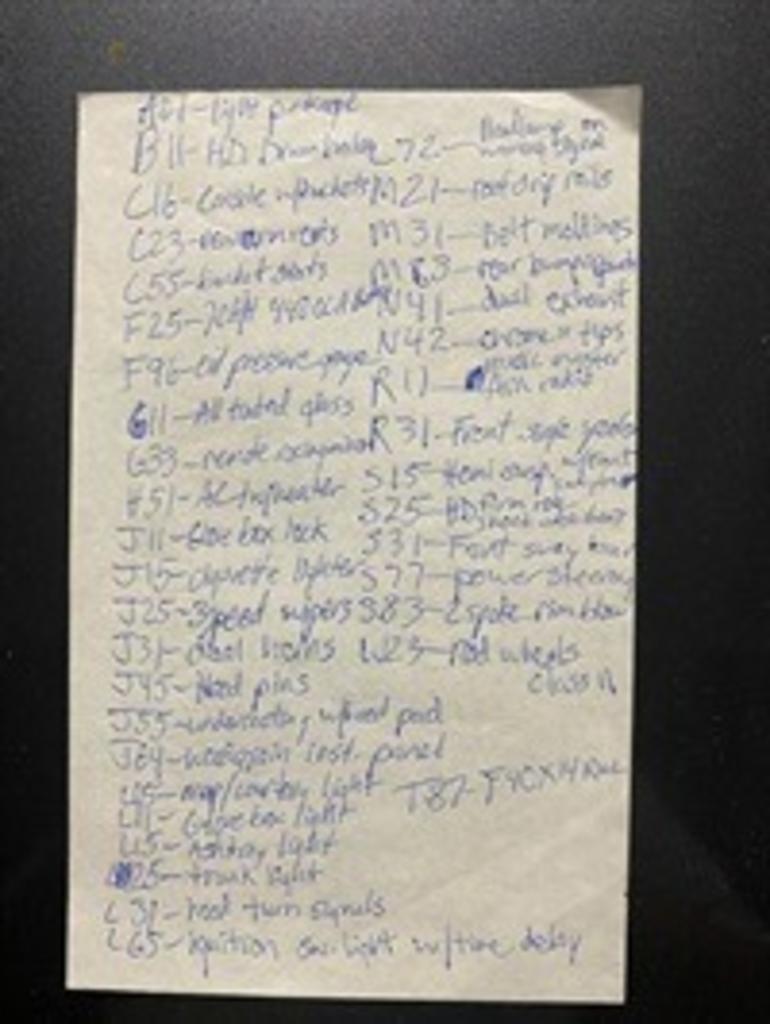 A01-light package
B11-HD Drum brakes
C16-Console w/buckets
C23-
C55-bucket seats
F25-70 A/H
F96-Oil pressure gage
G11-All tinted glass
G33-remote
H51-AC w/heater
J11-Glove box lock
J15-cigarette lighter
J25-3speed wipers
J31-dual horns
J45-Hood pins
J55-undercoating w/hood pad
J64-woodgrain inst. panel
map/courtesy light
L11-Glove box light
L15-Ashtray light
L25-trunk light
L31-hood turn signals
L65-Ignition sw. light w/time delay
L72-Headlamp on
warning signal
M21-roof drip rails
M31-belt moldings
M83-rear bumper guards
N41-dual exhaust
N42-chrome tips
R11-music master
radio
R31-Front
S15-Hemi susp.
S25-HD Firm
shock absorbers
S31-Front sway bar
S77-power steering
S83-2 spoke rim blow
W23-rod wheels
T87-F70X14